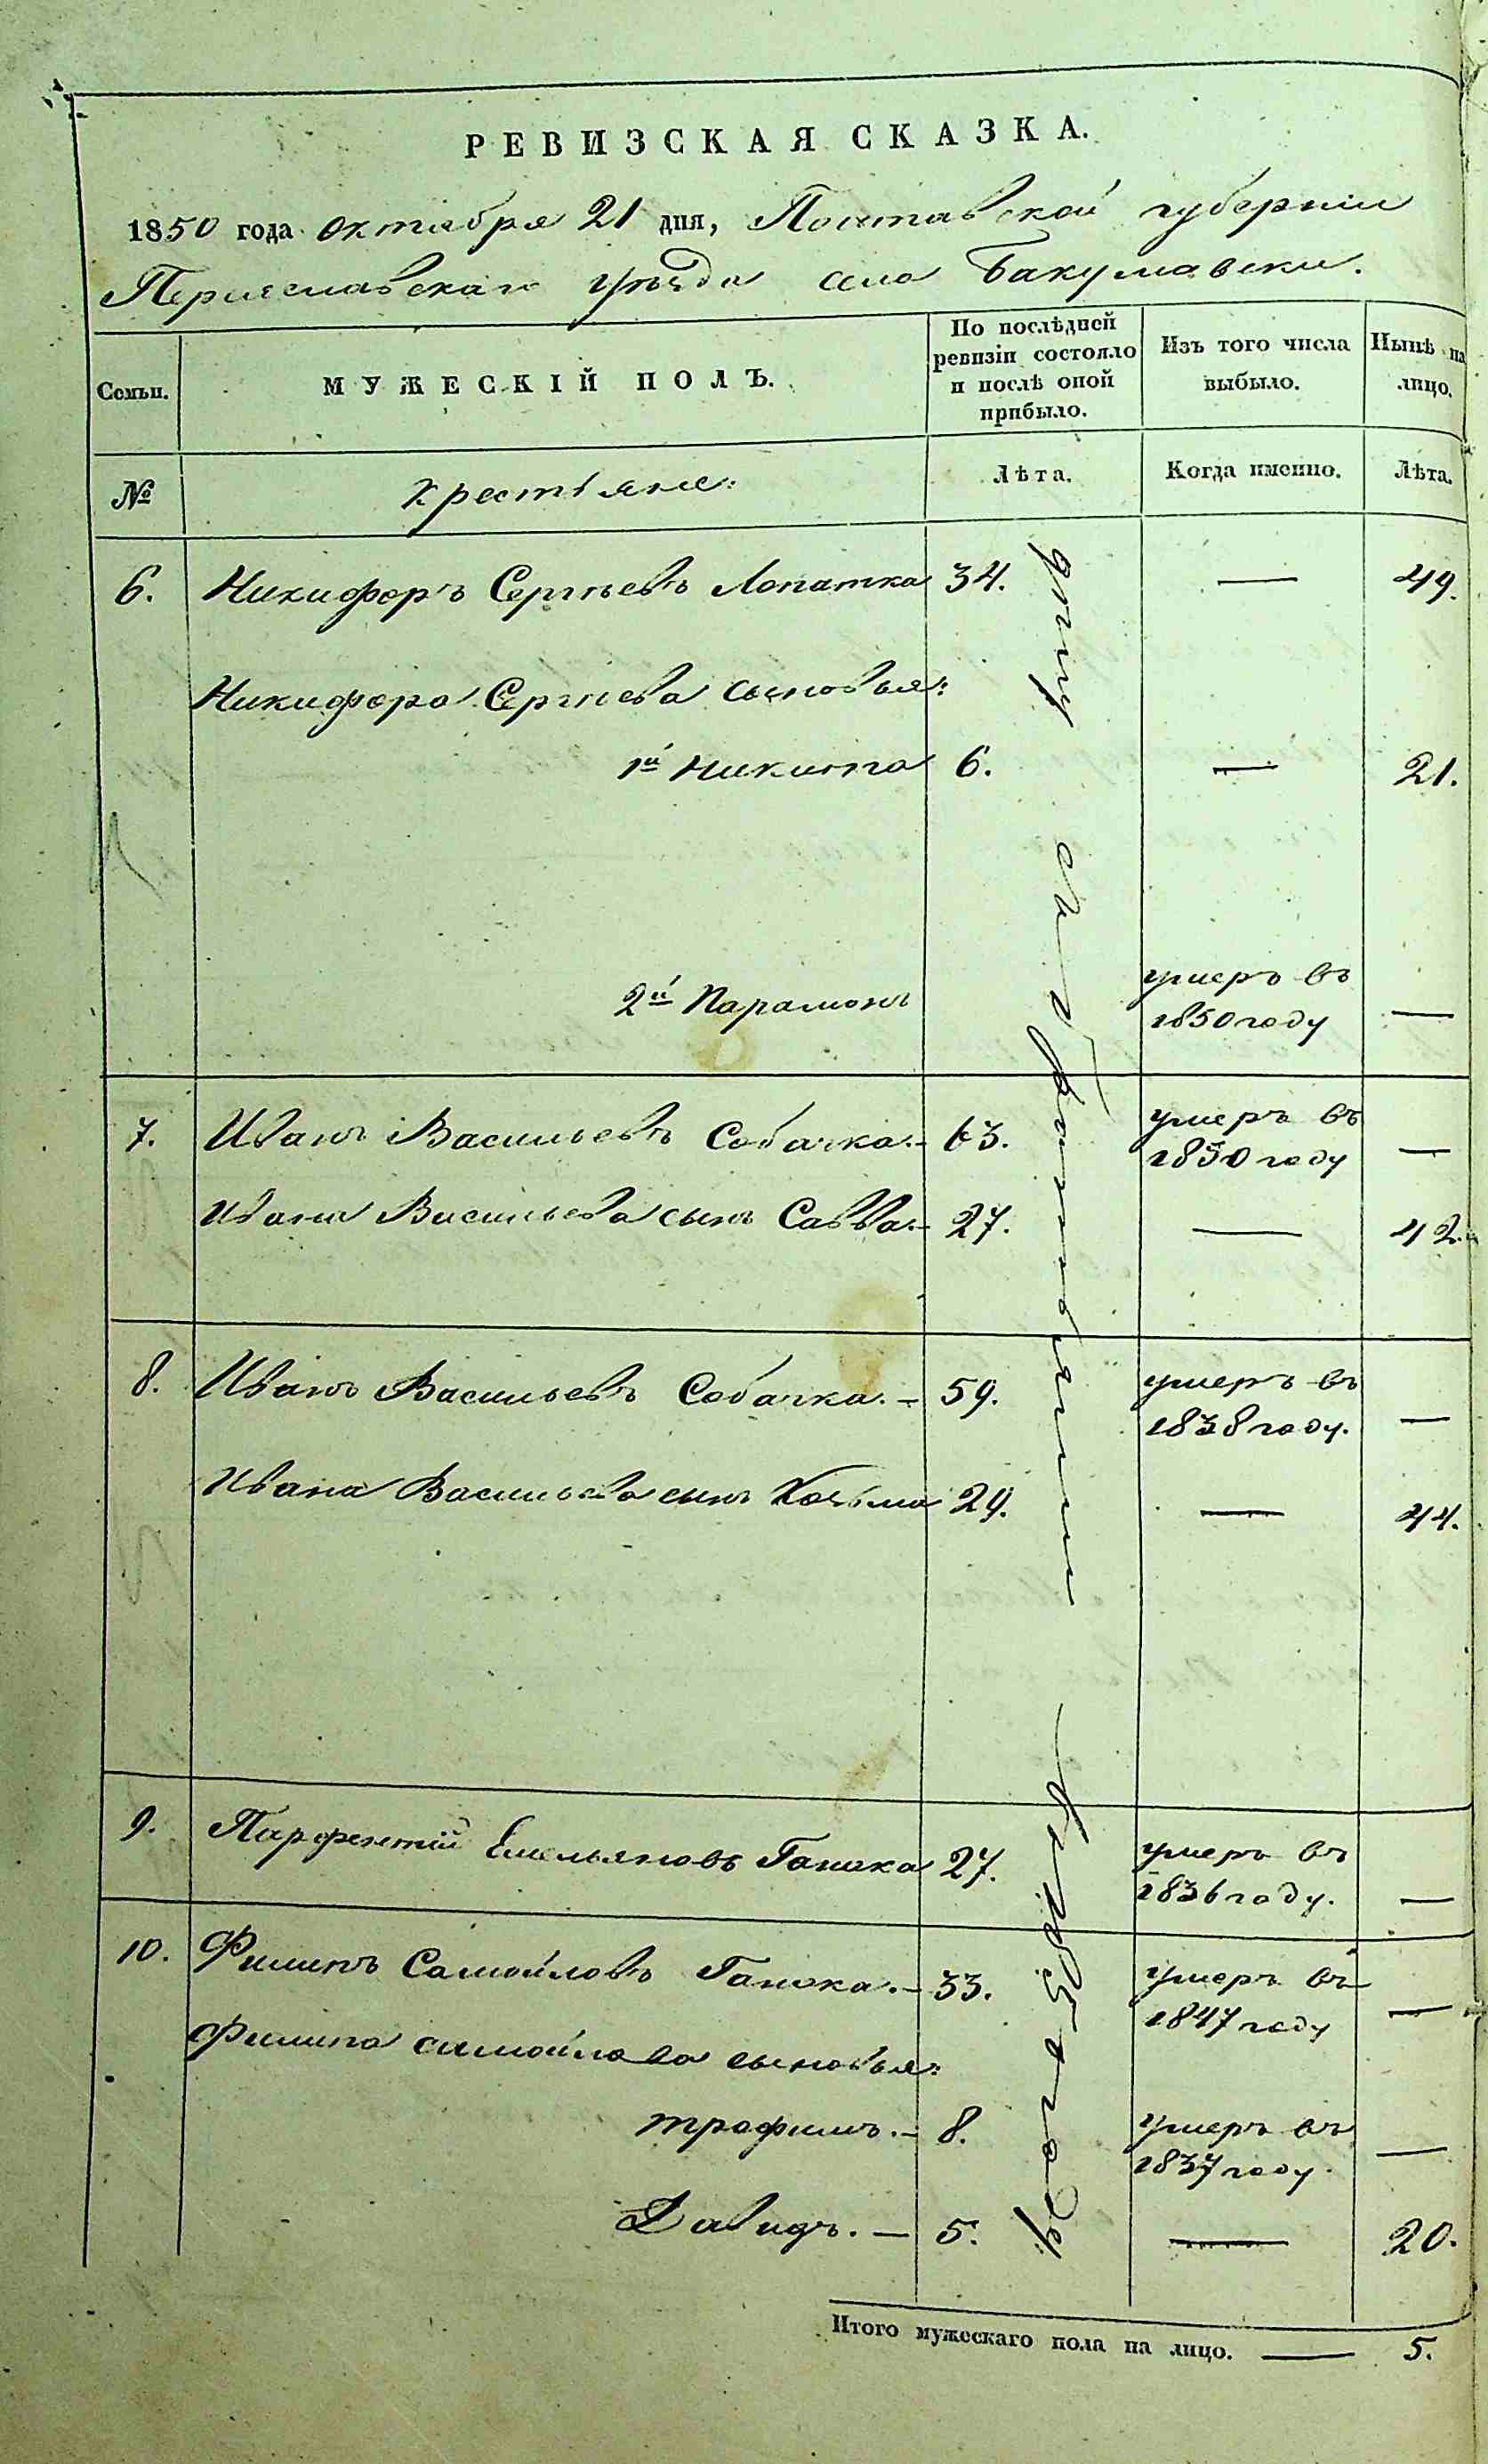 РЕВИЗСКАЯ СКАЗКА.
1850 года октября 21 дня, Полтавской губернии
Переяславскаго уезда села Бакумавски.
Семьи.
МУЖЕСКІЙ ПОЛЪ.
По послѣдней
ревизіи состояло
и послѣ оной
прибыло.
Изъ того числа
выбыло.
Нынѣ на
лицо.
№
Крестьяне:
Лѣта.
Когда именно.
Лѣта.
6. Никифоръ Сергѣевъ Лопатка 34. — 49.
Никифора Сергѣева сыновья:
1й Никита 6. — 21.
2й Парамонъ умеръ въ
1850 году —
7. Иванъ Васильевъ Собачка. - 63. умеръ въ
1850 году —
Ивана Васильева сынъ Савва. - 27. — 42.
8. Иванъ Васильевъ Собачка. - 59. умеръ въ
1838 году. —
Ивана Васильева сынъ Козьма 29. — 44.
9. Парфентій Емельяновъ Ганжа 27. умеръ въ
1836 году. —
10. Филипъ Самойловъ Ганжа. - 33. умеръ въ
1847 году —
Филипа Самойлова сыновья:
Трофимъ. - 8. умеръ въ
1837 году. —
Давидъ. — 5. — 20.
Итого мужескаго пола на лицо. — 5.